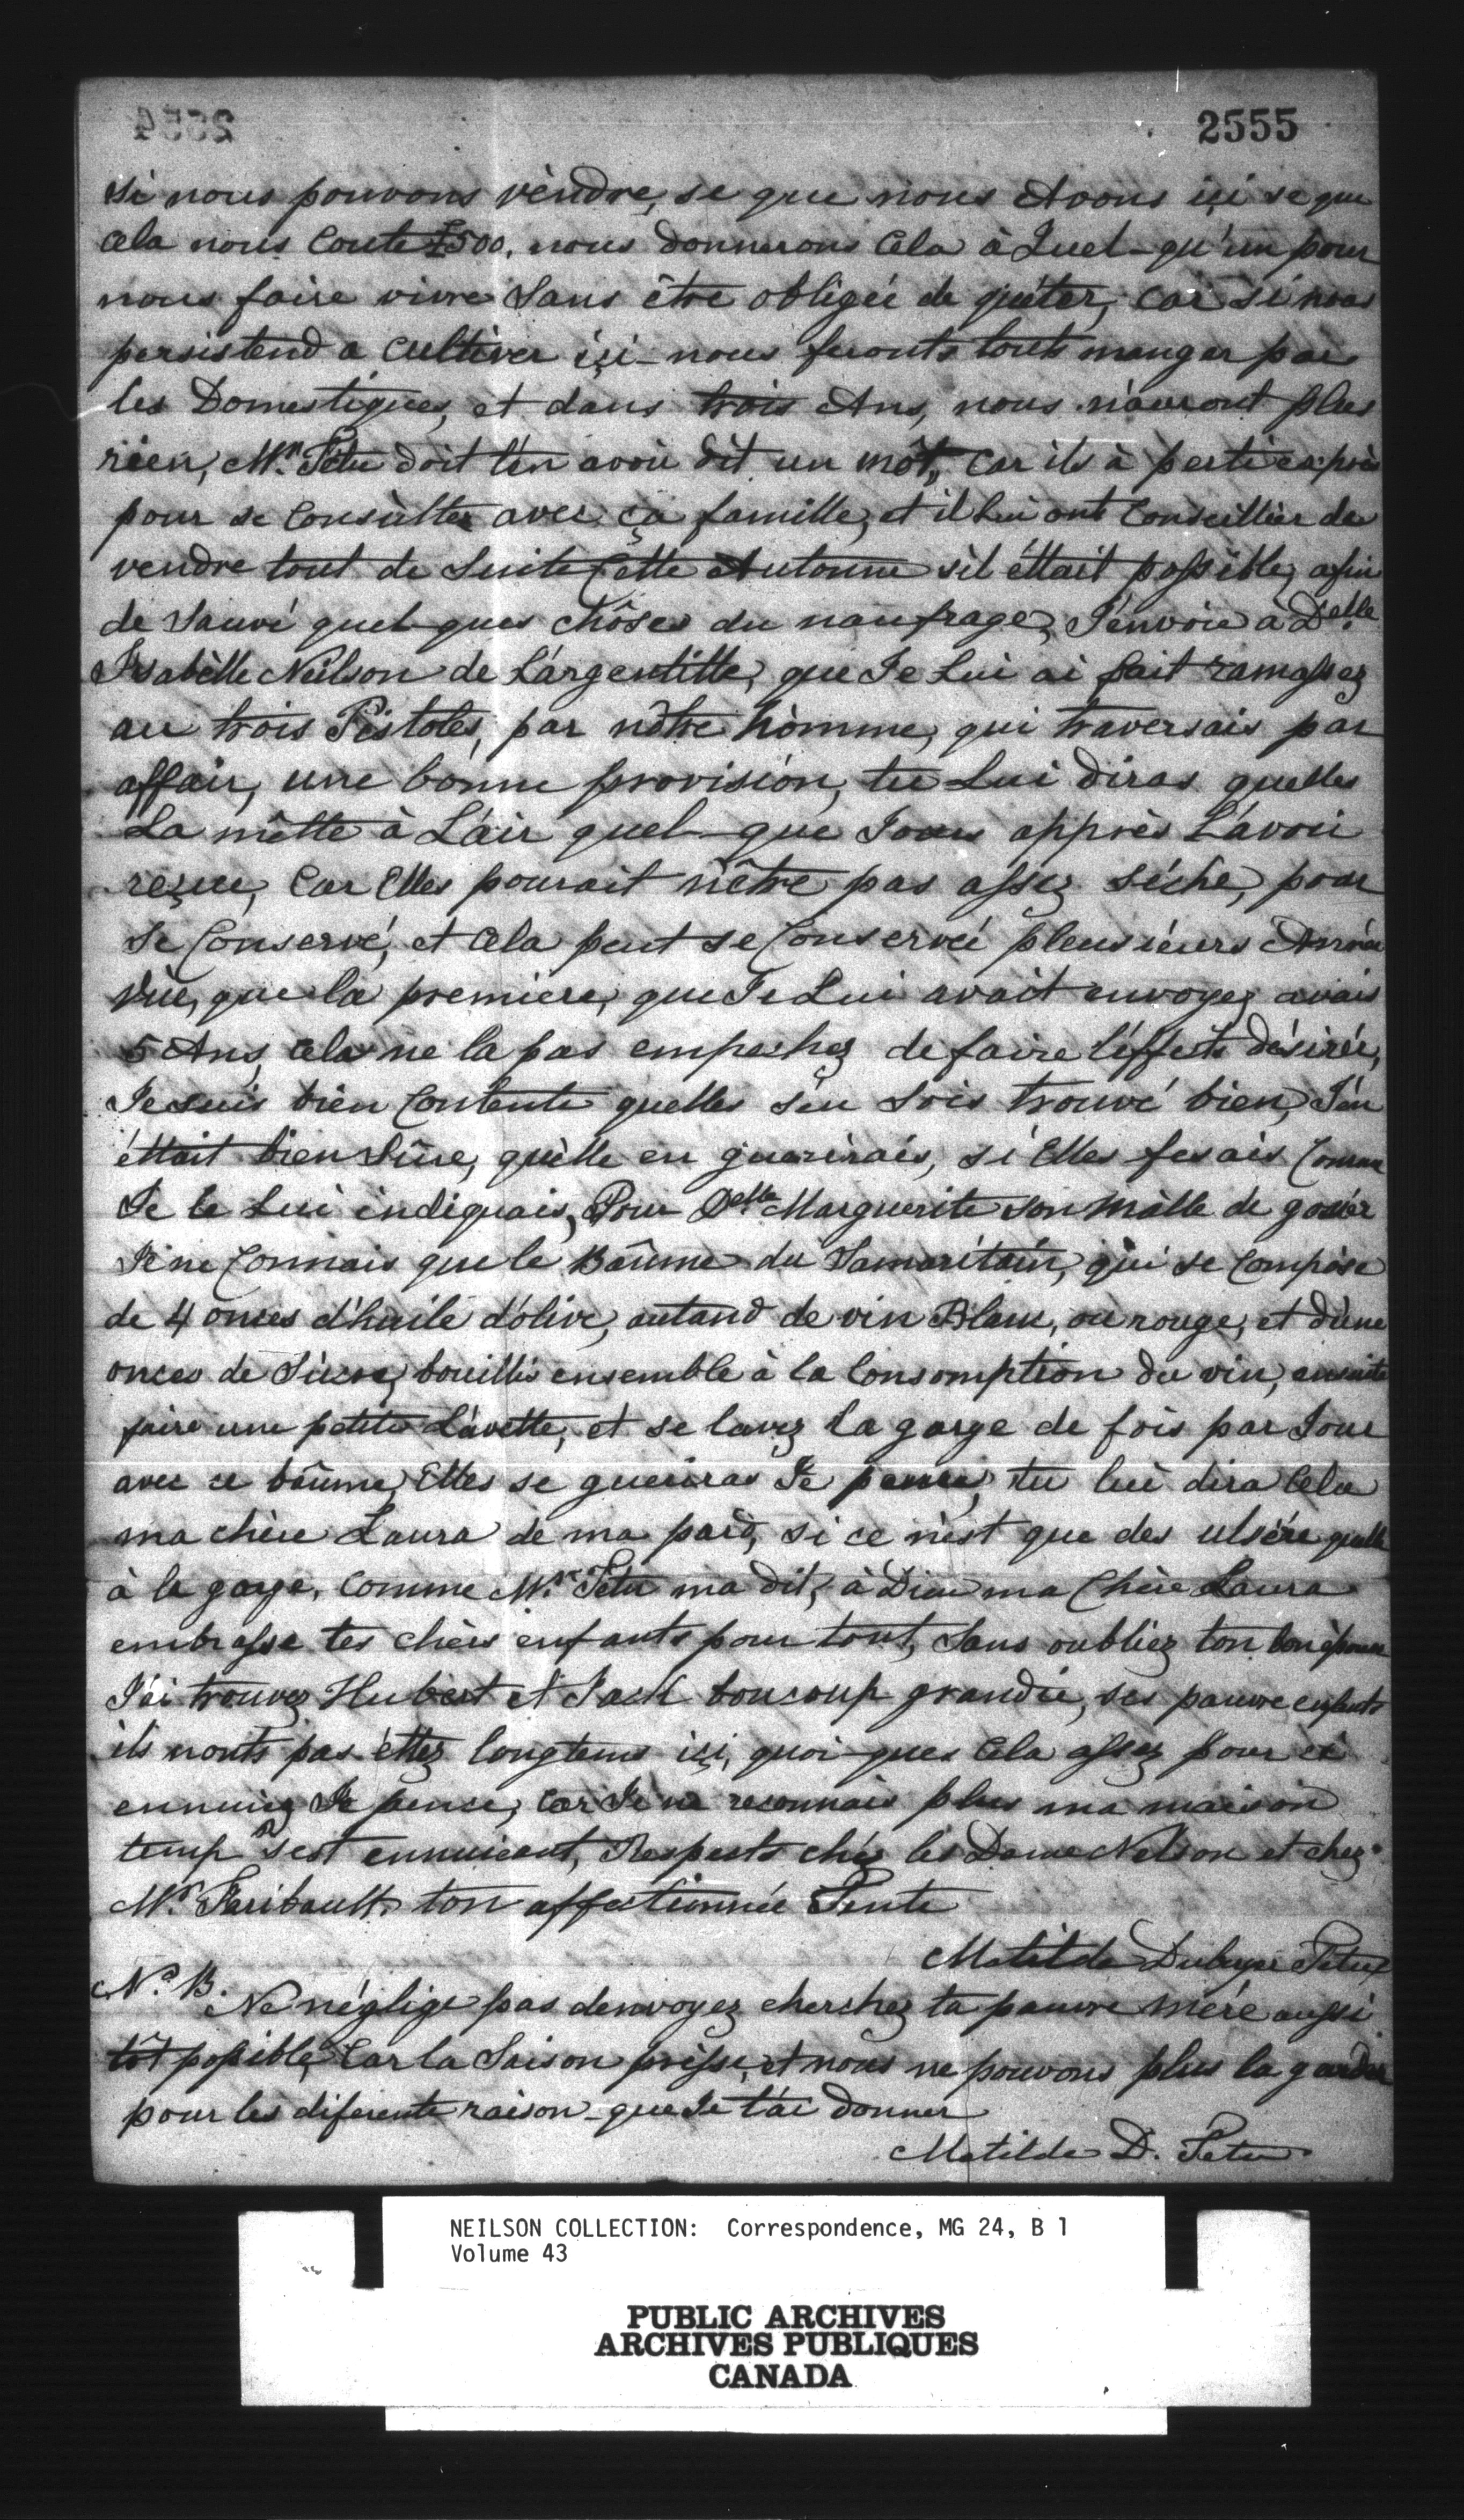 2555
si nous pouvons vèndre, se que nous Avons içi se que
cela nous Coute £500. nous donnerons Cela à Quel-qu'un pour
nous faire vivre Sans être obligée de quéter, car si nous
persistend a Cultiver içi- nous serons touts manger par
les Domestiques, et dans trois Ans, nous n'auront plus
rièen, Mr. Tétu doit t'en avoir dit un môt, Car ils à parti exprès
pour se Consùlter avec ça famille, et il lui ont Conseillier de
vendre tout de Suite Cette Autonne s'il éttait possible, afin
de Sauvé quel-ques chôses du naufrage, J'envoie à Delle
Isabèlle Neilson de L'argentille, que Je Lui ai fait ramassez
au trois Pistoles, par nôtre hòmme, qui traversais par
affair, une bonne provision, tu Lui diras quelles
La mêtte à L'air quel-que Jours apprès L'avoir
reçue, Car Elles pourait n'être pas assez sèche, pour
Se Conservé, et Cela peut se Conserveé pleusieurs Année
vùe, que la premiere, que Je Lui avait envoyez avais
5 Ans, Cela ne la pas empechez de faire l'éffets désirée,
Je suis bien Contente quelles s'en sois trouvé bien, J'en
éttait bien Sûre, quèlle en guerirais, si Elles fesais Comme
Je le Lui indiquais, Pour Delle Marguerite son Malle de gosier
Je ne Connais que le Baûme du Samaritain, qui se Compose
de 4 onces d'huile d'olive, autand de vin Blanc, ou rouge, et d'une
onces de Sùcre, bouillis ensemble à la Consomption du vin, ensuite
faire une petite Lavette, et se lavez la gorge de fois par Jour
avec ce baûme, Elles se gueriras Je pense, tu lui dira Cela
ma chère Laura de ma pard, si ce n'est que des ulsére quelle
à la gorge, Comme Mr. Tétu ma dit, à Dieu ma Chère Laura
embrasse tes chèrs enfants pour tout, Sans oubliez ton bon époux
J'ai trouvez Hubert et Jack boucoup grandie, ses pauvre enfants
ils nonts pas éttez longtems içi, quoi-ques Cela assez pour si
ennuiez Je pence, Car Je ne reconnais plus ma maison
temp s'est ennuieant, Respects chéz les Dame Nelson et chez
Mr. Faribault. ton affectionnée Tente
Matilde Dubergé Tétu
Na. B.
Ne néglige pas denvoyez cherchez ta pauvre mère aussi
tôt possible, Car la Saison prèsse, et nous ne pouvons plus la garder
pour les diferente raison- que Je t'ai donner
Matilde D. Tetu
NEILSON COLLECTION: Correspondence, MG 24, B 1
Volume 43
PUBLIC ARCHIVES
ARCHIVES PUBLIQUES
CANADA